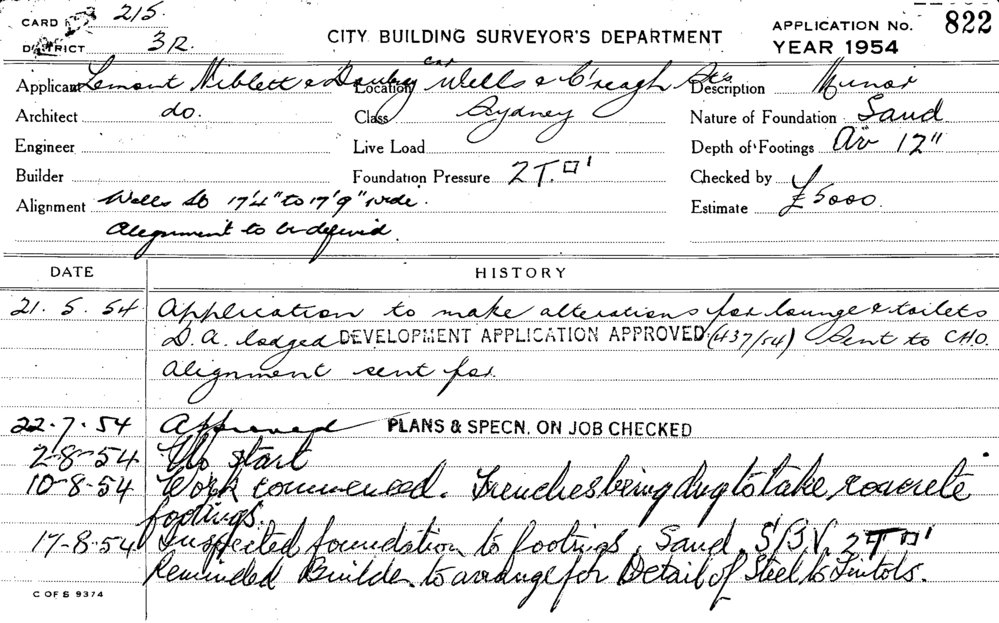 CARD 215.
DISTRICT 3R.
CITY BUILDING SURVEYOR'S DEPARTMENT
APPLICATION No. 822
YEAR 1954
Applicant Lemont Niblett & Location cnr Wells & C'reagh Sts Description Minor
Architect do. Class Sydney Nature of Foundation Sand
Engineer Live Load Depth of Footings Av 12"
Builder Foundation Pressure 2 T.□' Checked by
Alignment Wells St 17'4" to 17'9" wide. Estimate £5000.
Alignment to be defined.
DATE HISTORY
21. 5. 54 Application to make alterations for lounge & toilets
D.A. lodged DEVELOPMENT APPLICATION APPROVED (437/54) Sent to CHO.
Alignment sent for.
22-7-54 Approved PLANS & SPECN. ON JOB CHECKED
2-8-54 No start
10-8-54 Work commenced. Trenches being dug to take concrete
footings.
17-8-54 Inspected foundation to footings. Sand. 2 T □'
Reminded Builder to arrange for Detail of Steel to Lintols.
C OF S 9374